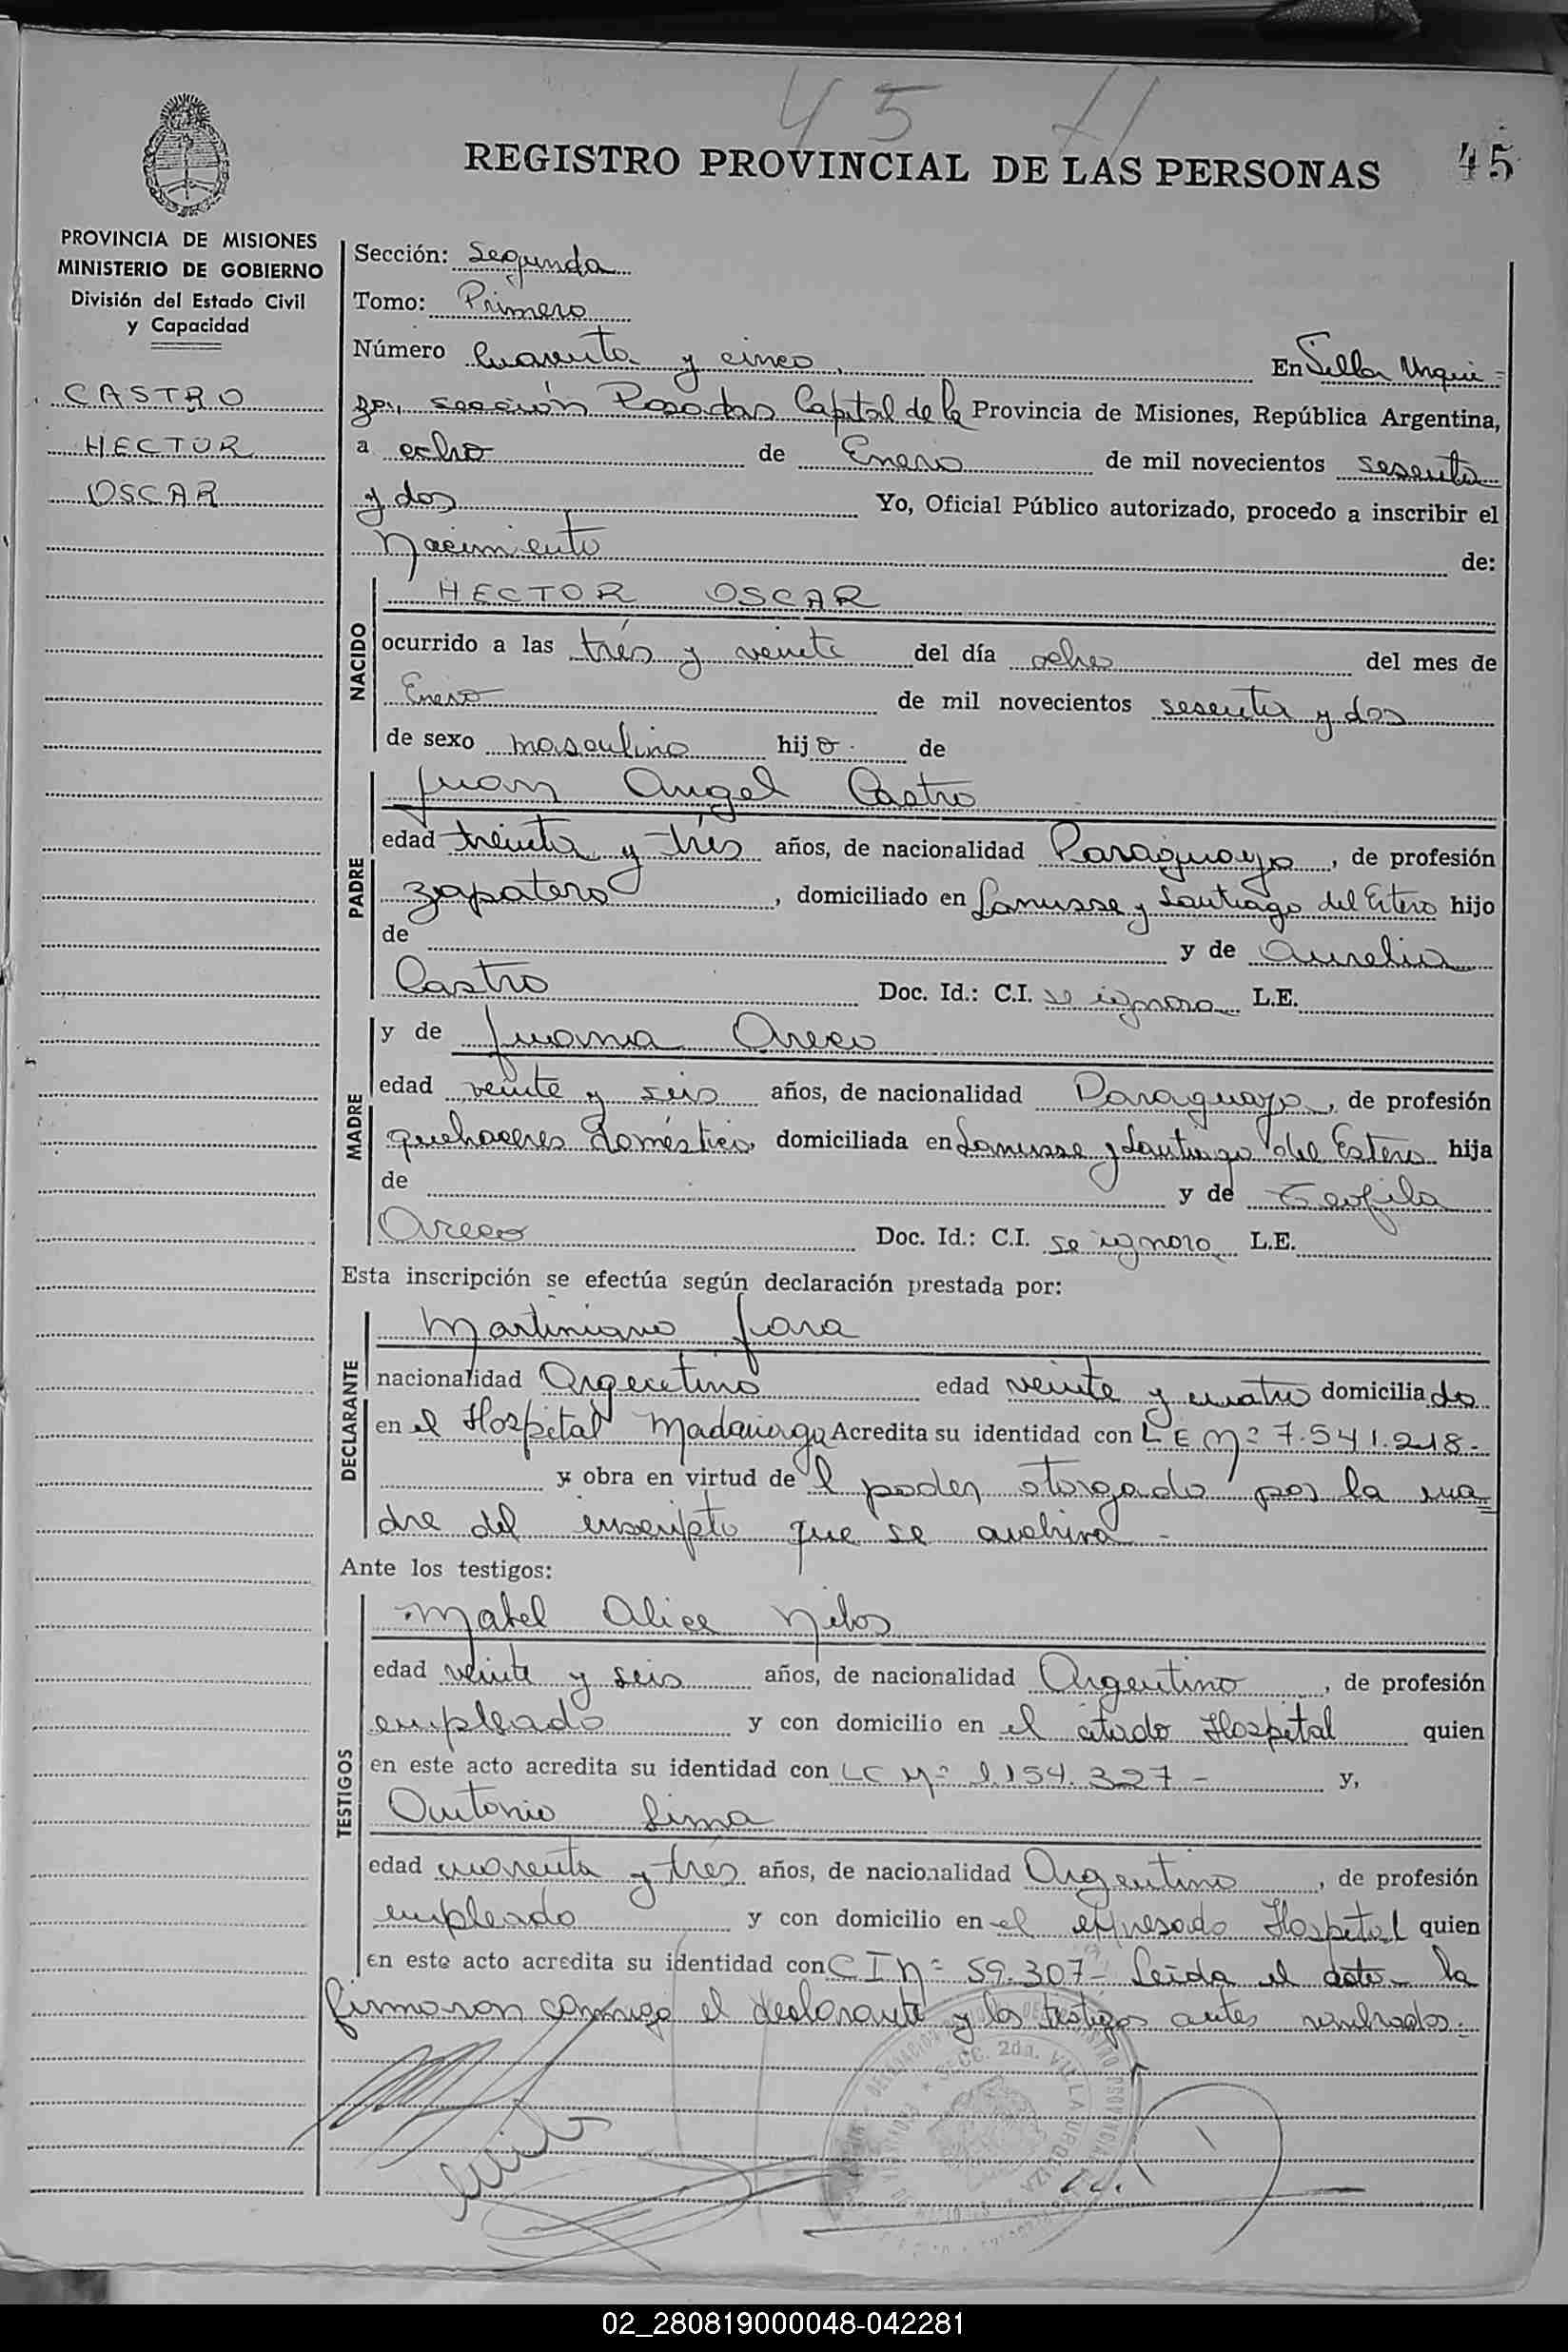 45
REGISTRO PROVINCIAL DE LAS PERSONAS 45
PROVINCIA DE MISIONES
MINISTERIO DE GOBIERNO
División del Estado Civil
y Capacidad
CASTRO
HECTOR
OSCAR
Sección: Segunda
Tomo: Primero
Número Cuarenta y cinco En Villa Urqui-
za, sección Posadas Capital de la Provincia de Misiones, República Argentina,
a ocho de Enero de mil novecientos sesenta
y dos Yo, Oficial Público autorizado, procedo a inscribir el
Nacimiento de:
NACIDO
HECTOR OSCAR
ocurrido a las trés y veinte del día ocho del mes de
Enero de mil novecientos sesenta y dos
de sexo masculino hijo de
PADRE
Juan Angel Castro
edad treinta y trés años, de nacionalidad Paraguaya, de profesión
zapatero, domiciliado en Lanusse y Santiago del Estero hijo
de y de Aurelia
Castro Doc. Id.: C.I. se ignora L.E.
MADRE
y de Juana Areco
edad veinte y seis años, de nacionalidad Paraguaya, de profesión
quehaceres doméstico domiciliada en Lanusse y Santiago del Estero hija
de y de Teofila
Areco Doc. Id.: C.I. se ignora L.E.
Esta inscripción se efectúa según declaración prestada por:
DECLARANTE
Martiniano Jara
nacionalidad Argentino edad veinte y cuatro domiciliado
en el Hospital Madariaga Acredita su identidad con L E Nº 7.541.218-
y obra en virtud de l poder otorgado por la ma
dre del inscripto que se archiva-
Ante los testigos:
TESTIGOS
Mabel Alice
edad veinte y seis años, de nacionalidad Argentino, de profesión
empleado y con domicilio en el citado Hospital quien
en este acto acredita su identidad con LC Nº 1.154.327- y,
Antonio Lima
edad cuarenta y trés años, de nacionalidad Argentino, de profesión
empleado y con domicilio en el expresado Hospital quien
en este acto acredita su identidad con C I Nº 59.307- Leída el acta la
firmaron conmigo el declarante y los testigos antes nombrados.
SECC. 2da. VILLA URQUIZA
02_280819000048-042281